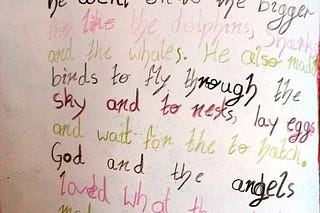 he went on to the bigger
like the dolphins, Sharks
and the whales. He also made
birds to fly through the
sky and to nests, lay eggs
and wait for the to hatch.
God and the angels
loved what th